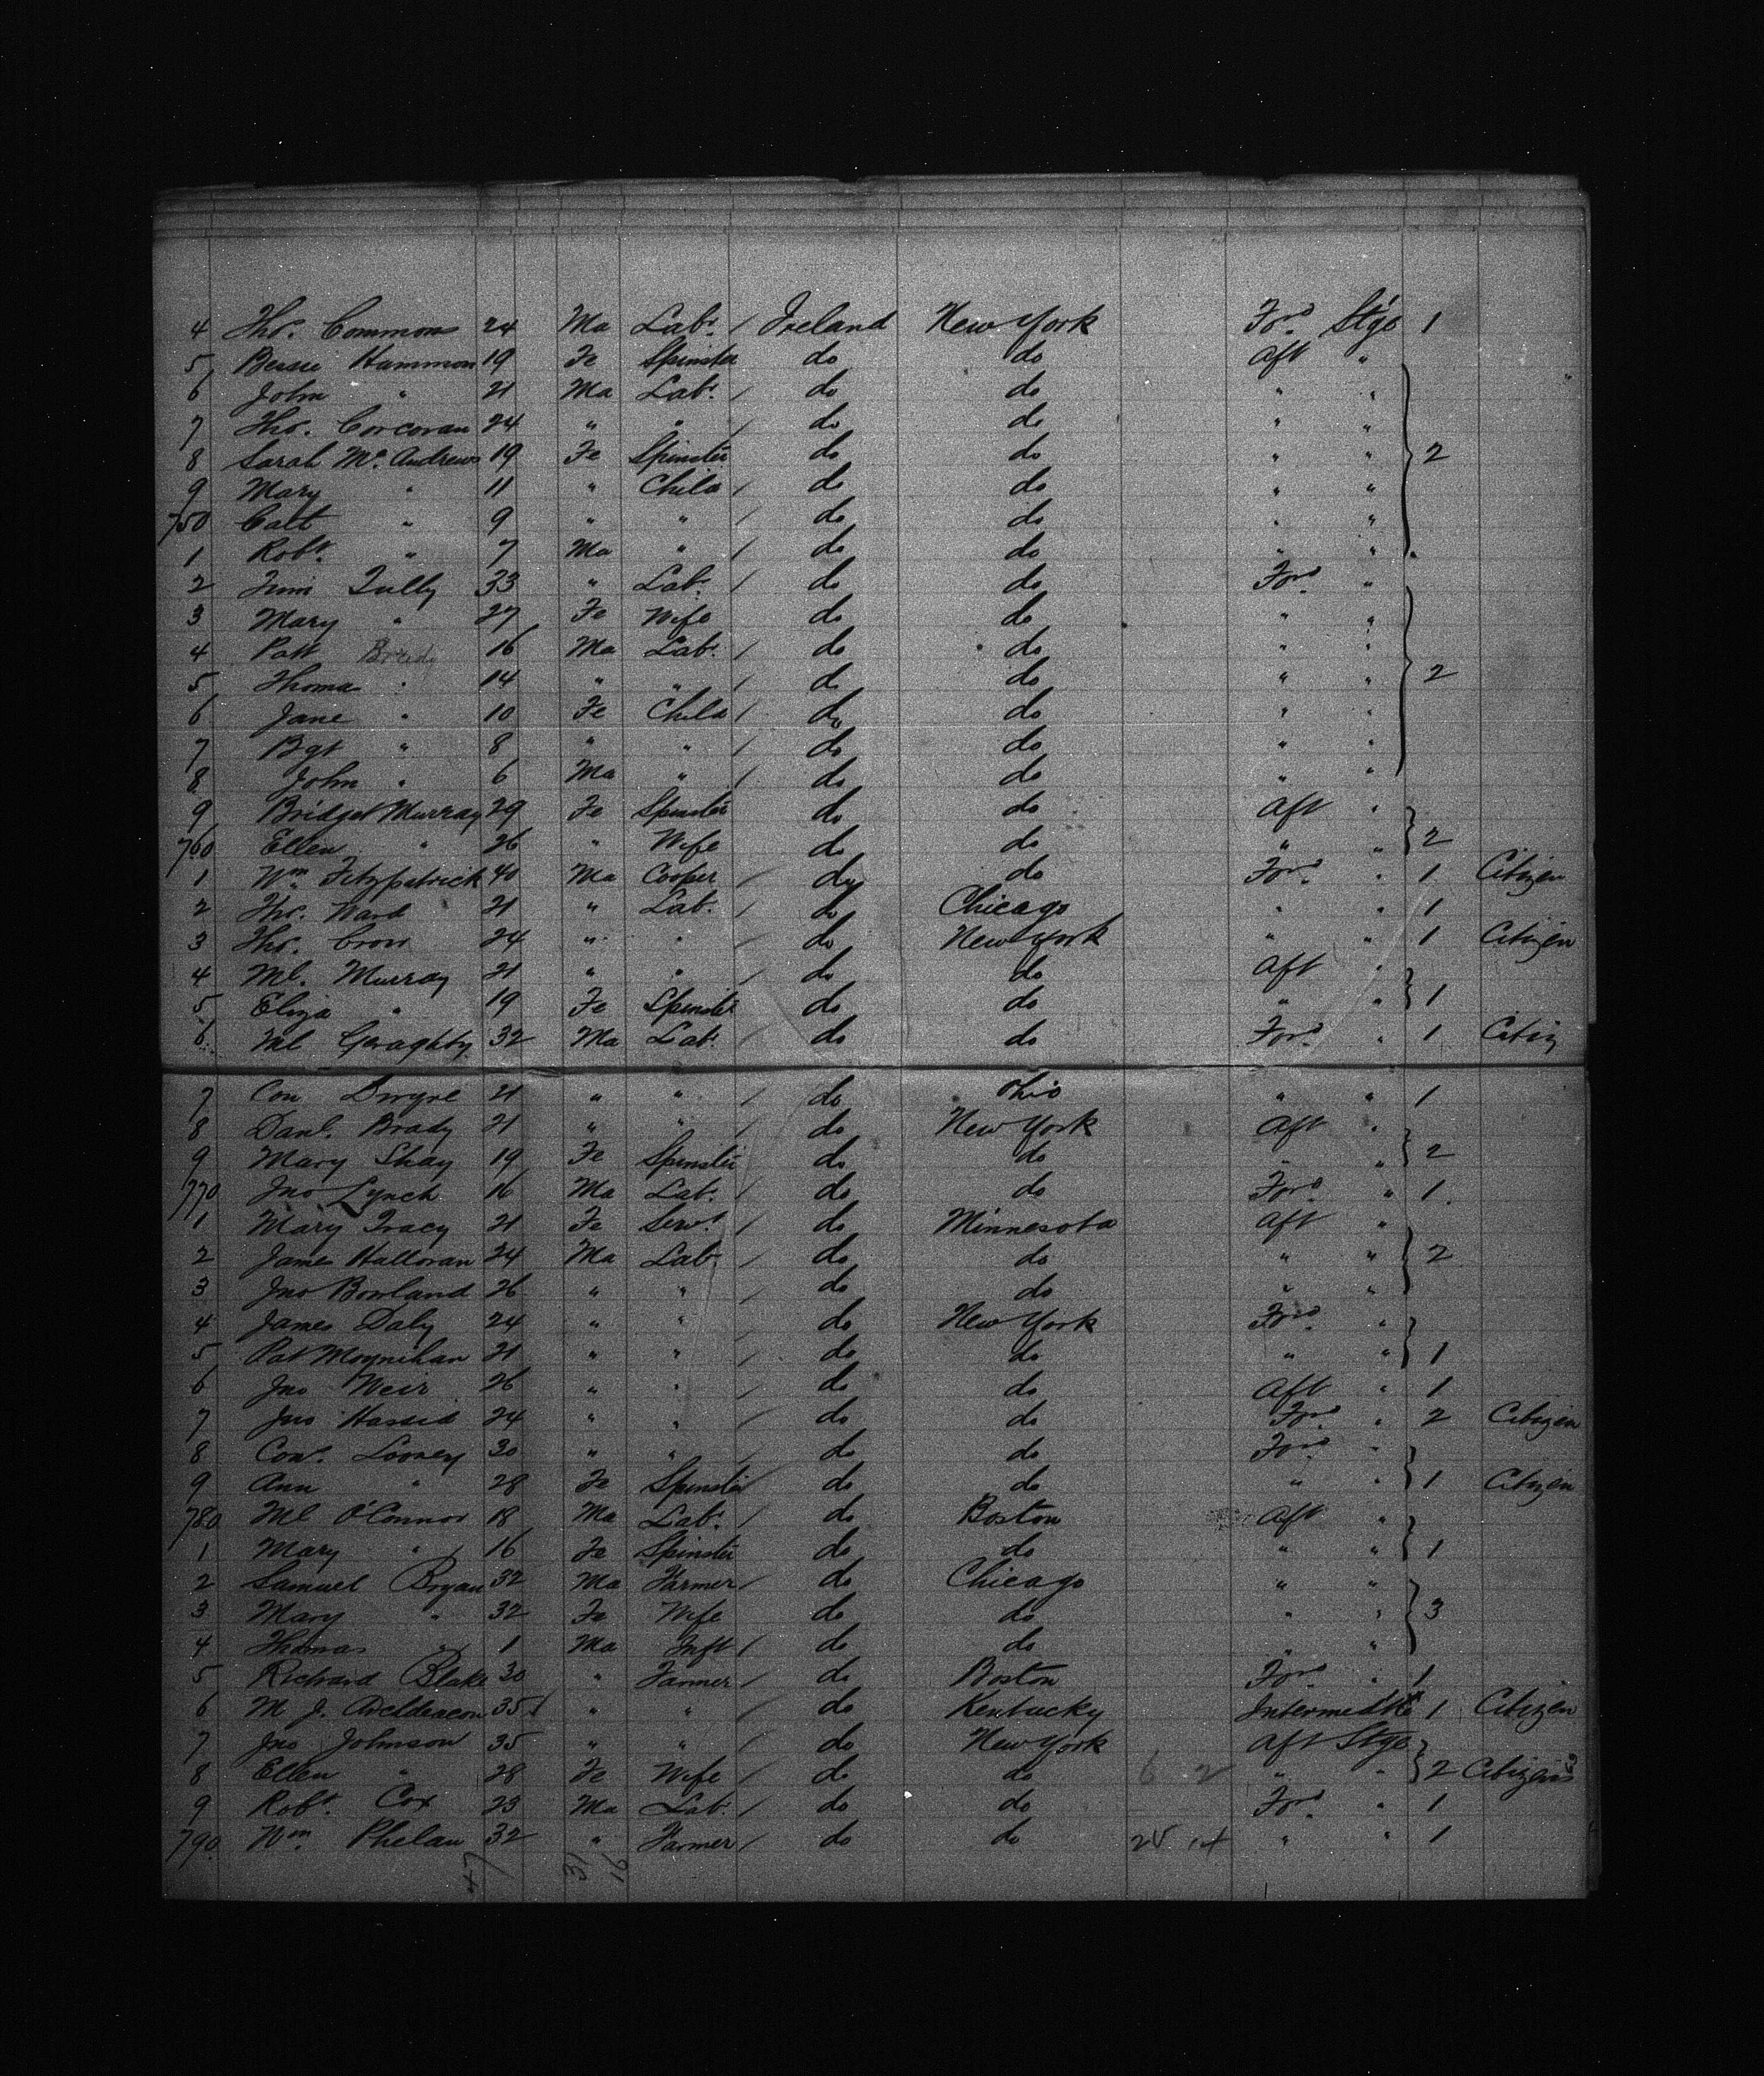 4 Thos. Common 24 Ma Labr. / Ireland New York Ford Stge 1
5 Bessie Hammon 19 Fe Spinster do do Aft "
6 John " 21 Ma Labr. / do do " "
7 Thos. Corcoran 24 " " / do do " "
8 Sarah Mc. Andrews 19 Fe Spinster do do " " 2
9 Mary " 11 " Child / do do " "
750 Cath " 9 " " / do do " "
1 Robt. " 7 Ma " / do do " "
2 Tully 33 " Labr. / do do Ford "
3 Mary " 27 Fe Wife do do " "
4 Patt 16 Ma Labr. / do do " "
5 Thomas " 14 " " / do do " " 2
6 Jane " 10 Fe Child / do do " "
7 Bgt " 8 " " / do do " "
8 John " 6 Ma " / do do " "
9 Bridget Murray 29 Fe Spinster do do Aft "
760 Ellen " 26 " Wife do do " " 2
1 Wm. Fitzpatrick 40 Ma Cooper / do do Ford " 1 Citizen
2 Thos. Ward 21 " Labr. / do Chicago " " 1
3 Thos. Cron 24 " " / do New York " " 1 Citizen
4 Ml. Murray 21 " " / do do Aft "
5 Eliza " 19 Fe Spinster do do " " 1
6 Ml Geraghty 32 Ma Labr. / do do Ford " 1 Citiz
7 Con Dwyre 21 " " / do Ohio " " 1
8 Danl. Brady 21 " " / do New York Aft "
9 Mary Shay 19 Fe Spinster do do " " 2
770 Jno Lynch 16 Ma Labr. / do do Ford " 1
1 Mary Tracy 21 Fe Servt / do Minnesota Aft "
2 James Halloran 24 Ma Labr / do do " " 2
3 Jno Bowland 26 " " / do do " "
4 James Daly 24 " " do New York Ford "
5 Pat Moynihan 21 " " / do do " " 1
6 Jno Weir 26 " " / do do Aft " 1
7 Jno 24 " " / do do Ford " 2 Citizen
8 Looney 30 " " / do do Ford "
9 Ann " 28 Fe Spinster / do do " " 1 Citizen
780 Ml O'Connor 18 Ma Labr. / do Boston Aft "
1 Mary " 16 Fe Spinster do do " " 1
2 Samuel Bryan 32 Ma Farmer / do Chicago " "
3 Mary " 32 Fe Wife do do " " 3
4 Thomas " 1 Ma Inft / do do " "
5 Richard Blake 30 " Farmer / do Boston Ford " 1
6 M J. 35 " " do Kentucky 1 Citizen
7 Jno Johnson 35 " " do New York Aft Stge
8 Ellen " 28 Fe Wife / do do 6 2 " " 2 Citizens
9 Robt. Cox 23 Ma Labr. / do do Ford " 1
790 Wm. Phelan 32 " Farmer / do do " " 1